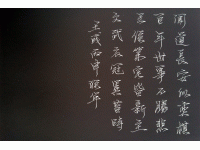 聞道長安似奕棋
百年世事不勝悲
王侯第宅皆新主
文武衣冠異昔時